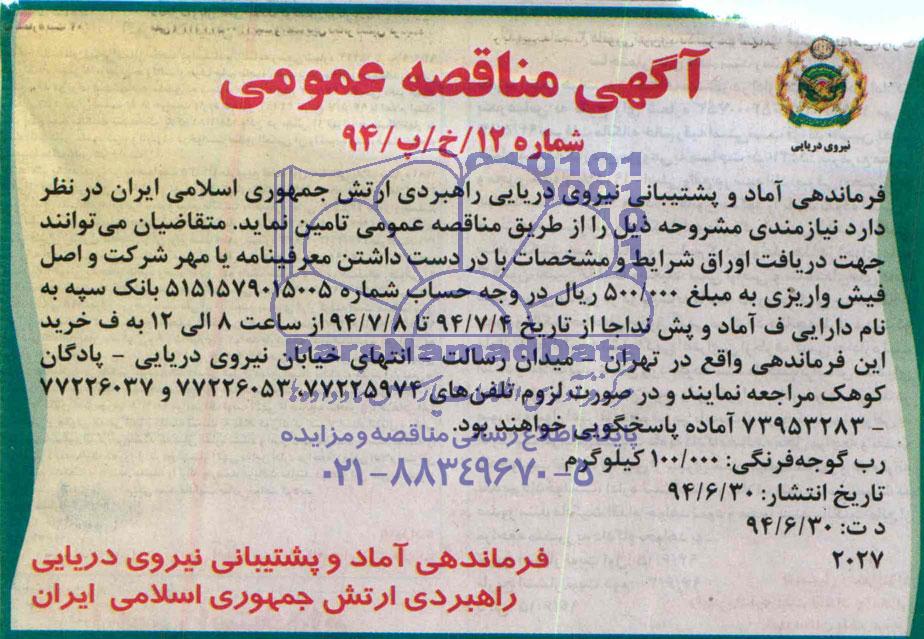 آگهی مناقصه عمومی
شماره ۱۲/خ/پ/۹۴
نیروی دریایی
فرماندهی آماد و پشتیبانی نیروی دریایی راهبردی ارتش جمهوری اسلامی ایران در نظر
دارد نیازمندی مشروحه ذیل را از طریق مناقصه عمومی تامین نماید. متقاضیان می‌توانند
جهت دریافت اوراق شرایط و مشخصات با در دست داشتن معرفینامه یا مهر شرکت و اصل
فیش واریزی به مبلغ ۵۰۰/۰۰۰ ریال در وجه حساب شماره ۵۱۵۱۵۷۹۰۱۵۰۰۵ بانک سپه به
نام دارایی ف آماد و پش نداجا از تاریخ ۹۴/۷/۴ تا ۹۴/۷/۸ از ساعت ۸ الی ۱۲ به ف خرید
این فرماندهی واقع در تهران - میدان رسالت - انتهای خیابان نیروی دریایی - پادگان
کوهک مراجعه نمایند و در صورت لزوم تلفن‌های ۷۷۲۲۵۹۷۴، ۷۷۲۲۶۰۵۳ و ۷۷۲۲۶۰۳۷
- ۷۳۹۵۳۲۸۳ آماده پاسخگویی خواهند بود.
رب گوجه‌فرنگی: ۱۰۰/۰۰۰ کیلوگرم
تاریخ انتشار: ۹۴/۶/۳۰
د ت: ۹۴/۶/۳۰
۲۰۲۷
فرماندهی آماد و پشتیبانی نیروی دریایی
راهبردی ارتش جمهوری اسلامی ایران
ParsNamadData
پایگاه اطلاع رسانی مناقصه و مزایده
۰۲۱-۸۸۳۴۹۶۷۰-۵